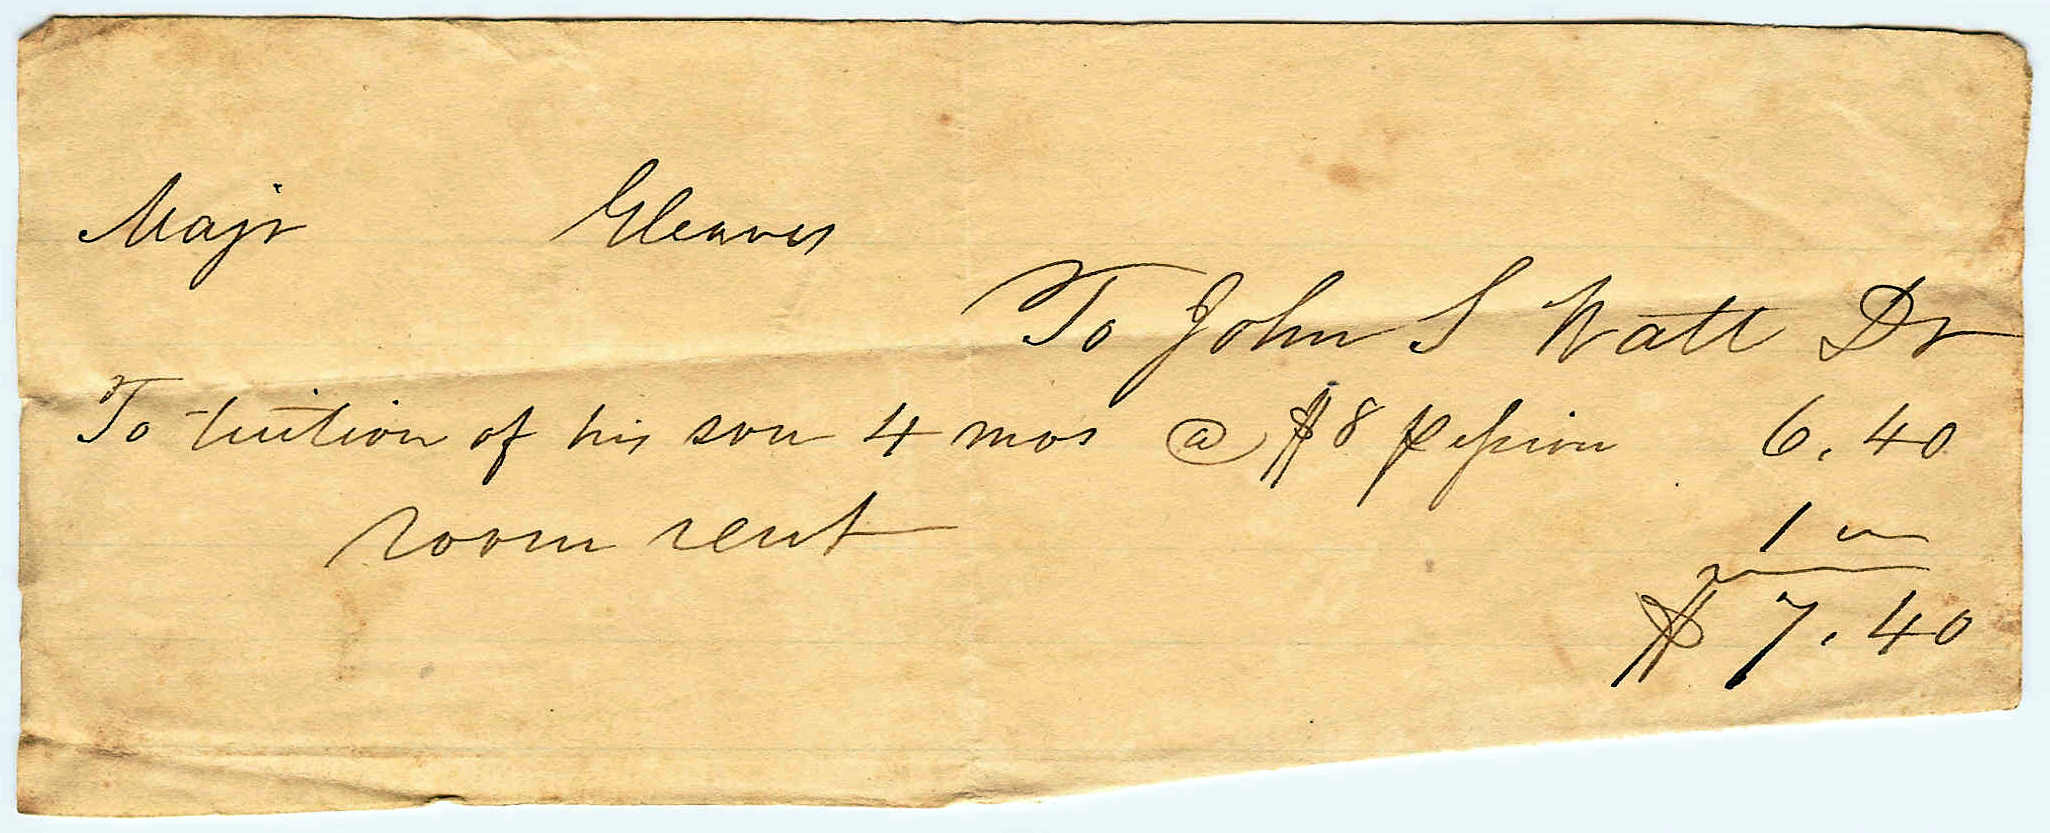 Majr Gleaves
To John S Watt Dr
To tuition of his son 4 mos @ $8 ⅌ session 6.40
room rent 1 00
$ 7.40